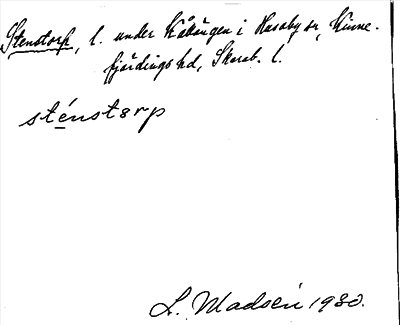 Stenstorp, l. under Kåkängen i Husaby sn, Kinne-
fjärdings hd, Skarab. l.
sténstorp
L. Madsén 1930.